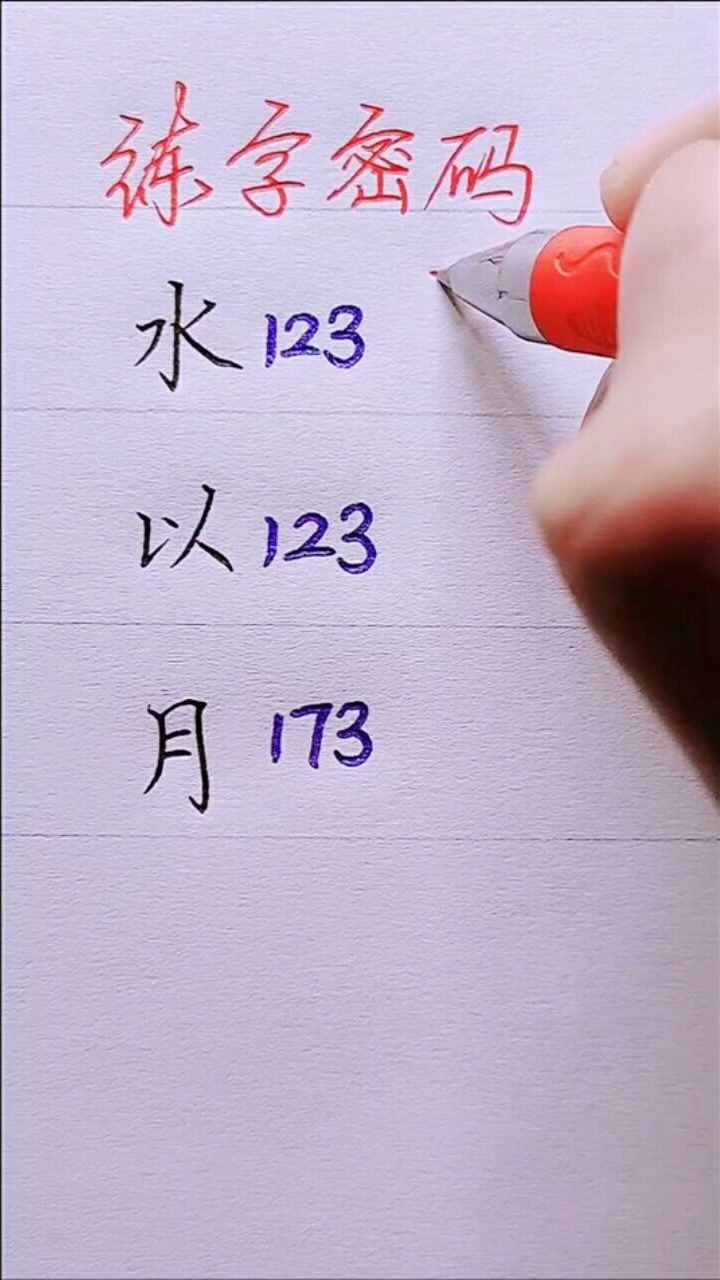 练字密码
水 123
以 123
月 173